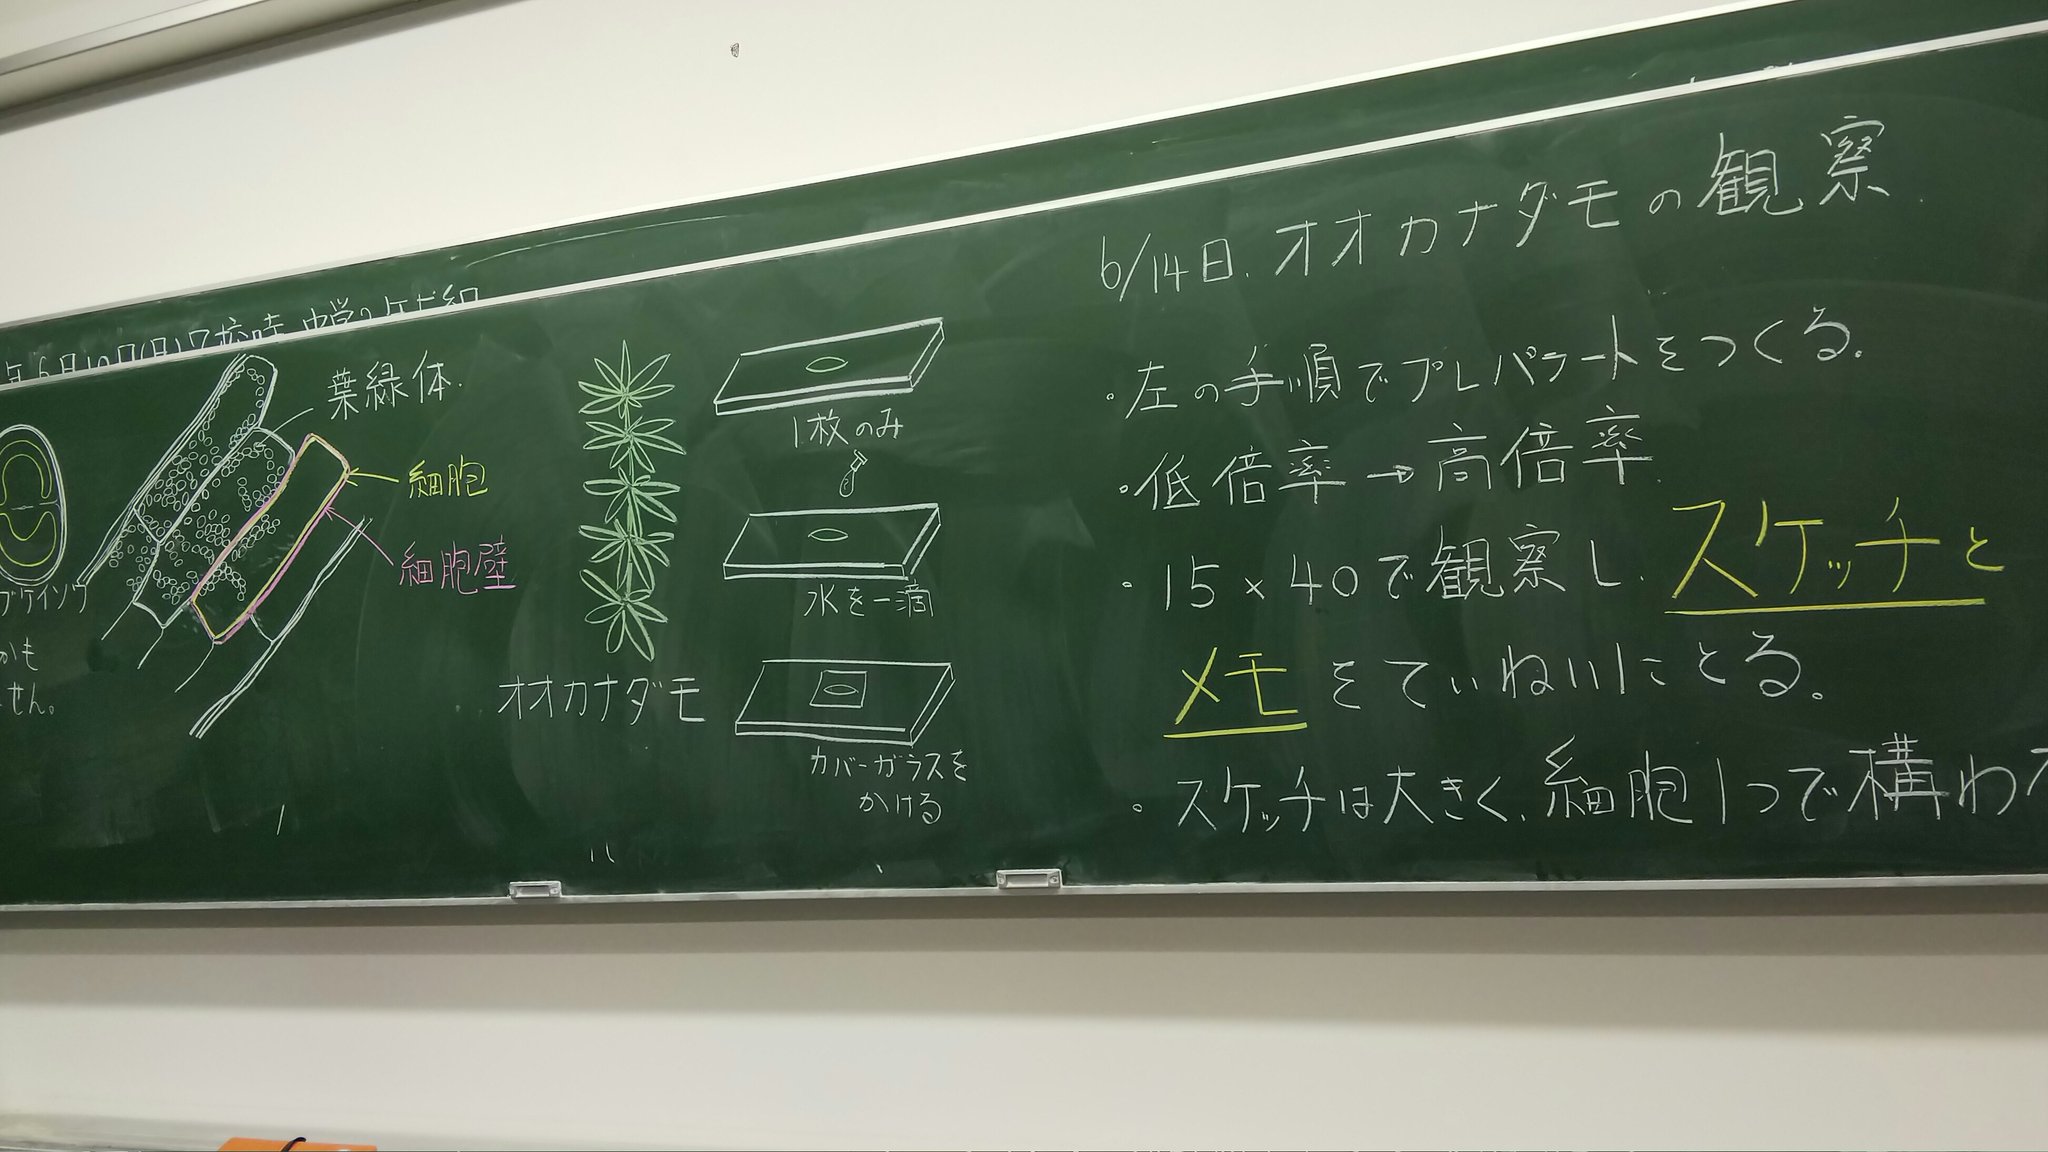 6/14日.オオカナダモの観察.
・左の手順でプレパラートをつくる.
・低倍率→高倍率.
・15×40で観察し.スケッチと
メモをていねいにとる。
・スケッチは大きく.細胞1つで構わ
葉緑体.
細胞
細胞壁
オオカナダモ
1枚のみ
水を一滴
カバーガラスを
かける
ブケイソウ
かも
せん。